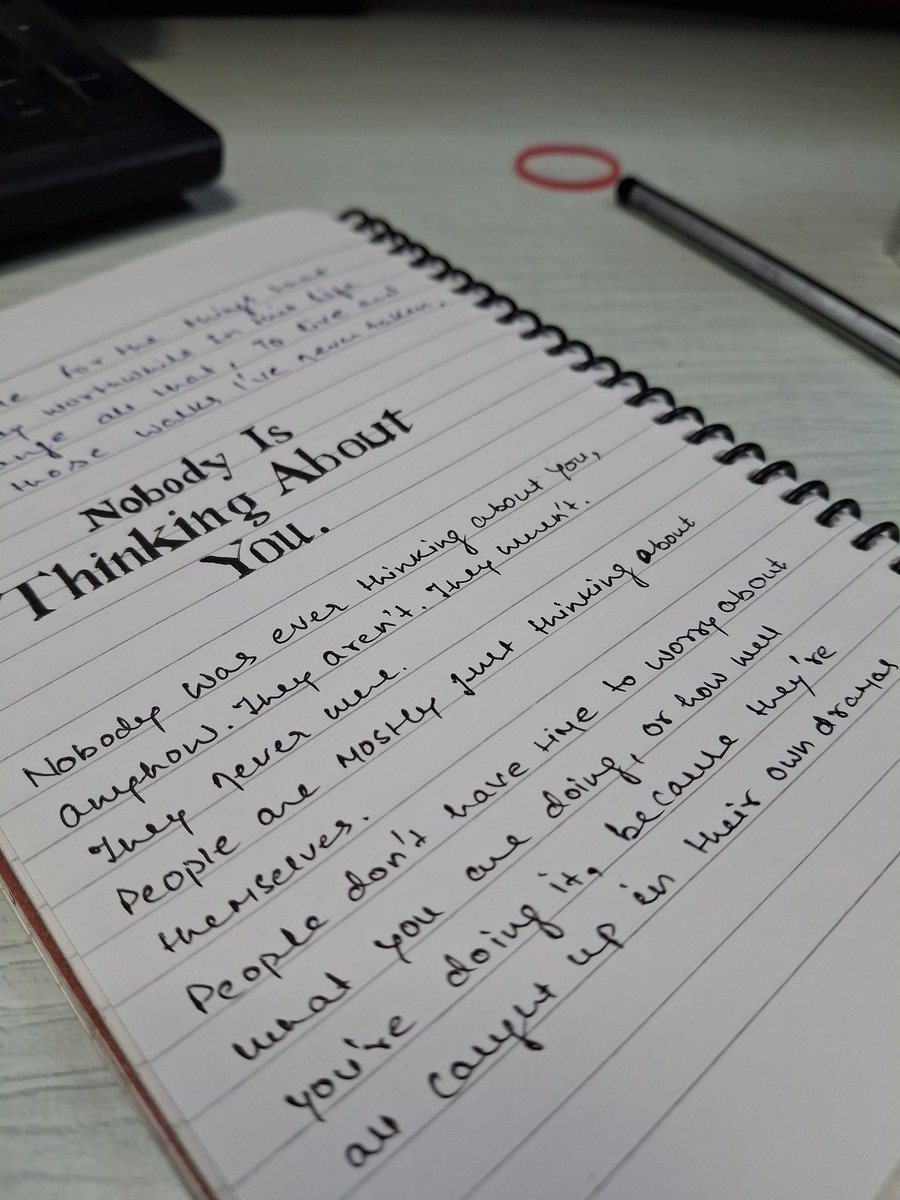 for the things that
worthwhile in this life
all that, To live and
those walks I've never taken.
Nobody Is
Thinking About
You.
Nobody was ever thinking about you,
anyhow. They aren't. They weren't.
They never were.
People are mostly just thinking about
themselves.
People don't have time to worry about
what you are doing, or how well
you're doing it, because they're
all caught up in their own dramas